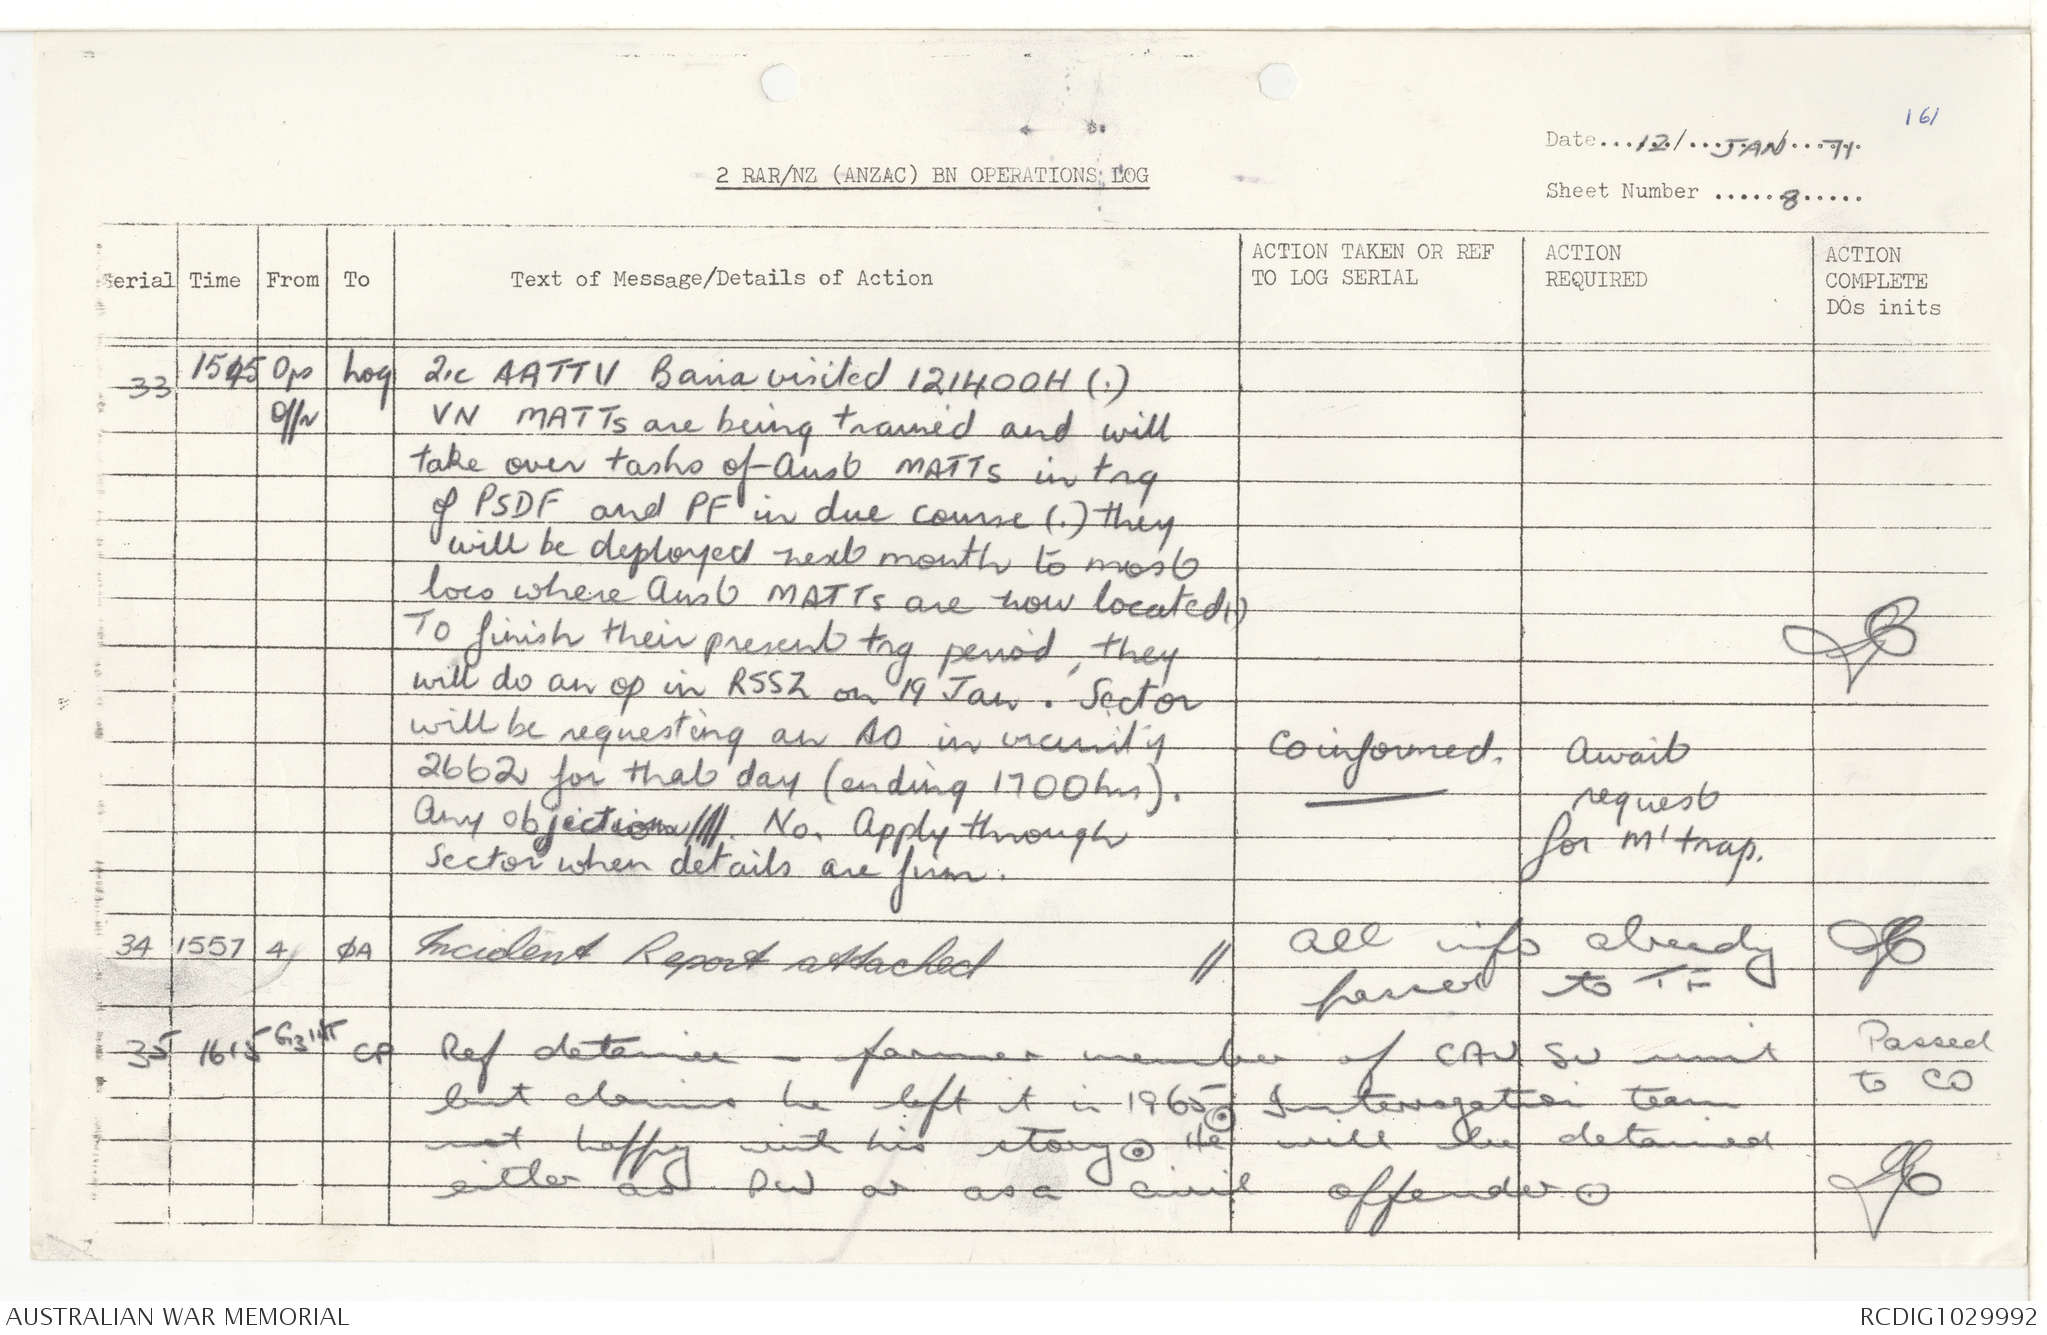 161
Date...12/...JAN...71.
2 RAR/NZ (ANZAC) BN OPERATIONS LOG
Sheet Number .....8.....
Serial Time From To Text of Message/Details of Action ACTION TAKEN OR REF TO LOG SERIAL ACTION REQUIRED ACTION COMPLETE DOs inits
33 1545 Ops Offr Log 2ic AATTV Baria visited 121400H (.)
VN MATTs are being trained and will
take over tasks of Aust MATTS in trg
of PSDF and PF in due course (.) they
will be deployed next month to most
locs where Aust MATTs are now located (.)
To finish their present trg period, they
will do an op in RSSZ on 19 Jan. Sector
will be requesting an AO in vicinity
2662 for that day (ending 1700hrs).
Any objections. No. Apply through
Sector when details are firm.
CO informed.
Await
request
for M'trap.
34 1557 4 ØA Incident Report attached // All info already
passed to TF
35 1615 G3 INT CP Ref detainee - former member of CAV SV unit
but claims he left it in 1965 Interrogation team
not happy with his story He will be detained
either as PW or as a civil offender
Passed
to CO
AUSTRALIAN WAR MEMORIAL
RCDIG1029992